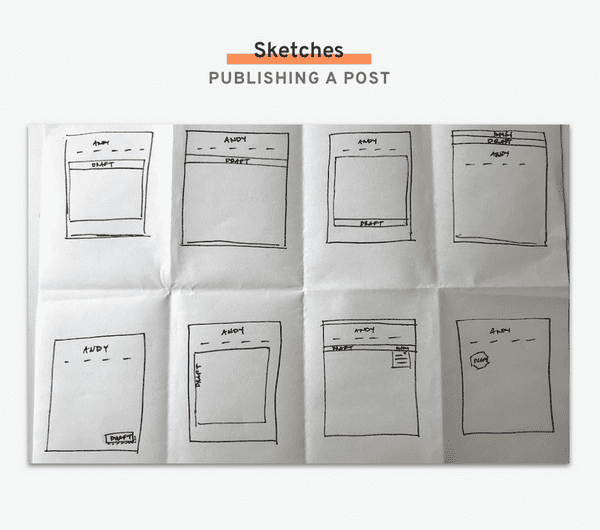 Sketches
PUBLISHING A POST
ANDY
DRAFT
ANDY
DRAFT
ANDY
DRAFT
DRAFT
ANDY
ANDY
DRAFT
ANDY
DRAFT
ANDY
DRAFT
ANDY
DRAFT